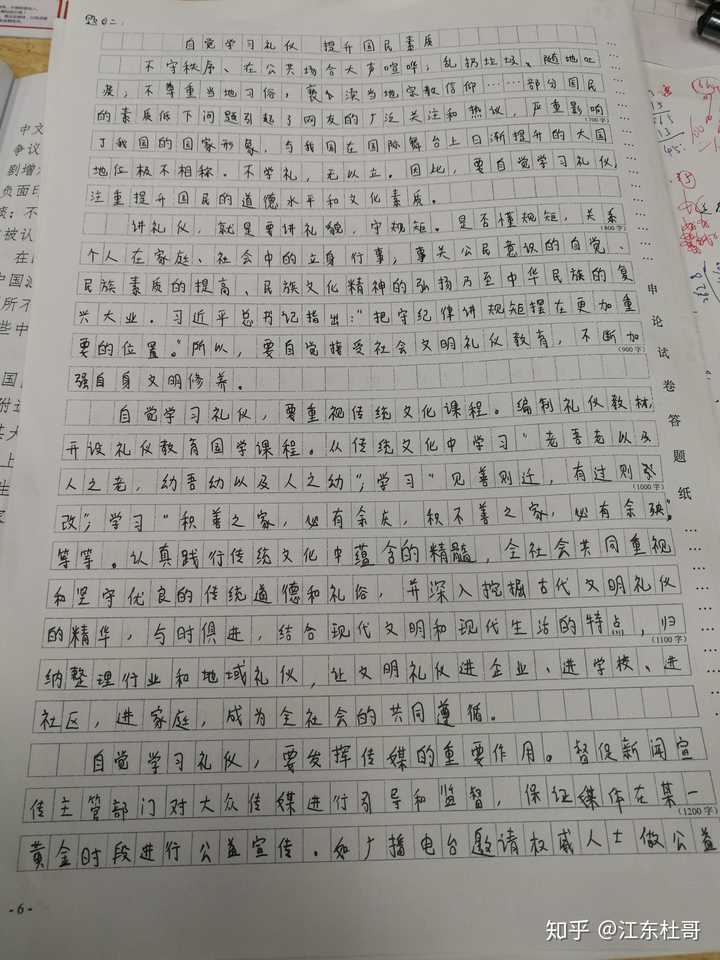 题二：
自觉学习礼仪 提升国民素质
不守秩序、在公共场合大声喧哗，乱扔垃圾、随地吐
痰，不尊重当地习俗，亵渎当地宗教信仰……部分国民
的素质低下问题引起了网友的广泛关注和热议，严重影响
(700字)
了我国的国家形象，与我国在国际舞台上日渐提升的大国
地位极不相称。不学礼，无以立。因此，要自觉学习礼仪，
注重提升国民的道德水平和文化素质。
讲礼仪，就是要讲礼貌，守规矩。是否懂规矩，关系
(800字)
个人在家庭、社会中的立身行事，事关公民意识的自觉、
民族素质的提高、民族文化精神的弘扬乃至中华民族的复
兴大业。习近平总书记指出："把守纪律讲规矩摆在更加重
要的位置。"所以，要自觉接受社会文明礼仪教育，不断加
(900字)
强自身文明修养。
自觉学习礼仪，要重视传统文化课程。编制礼仪教材，
开设礼仪教育国学课程。从传统文化中学习"老吾老以及
人之老，幼吾幼以及人之幼"，学习"见善则迁，有过则
(1000字)
改"，学习"积善之家，必有余庆，积不善之家，必有余殃"
等等。认真践行传统文化中蕴含的精髓，全社会共同重视
和坚守优良的传统道德和礼俗，并深入挖掘古代文明礼仪
的精华，与时俱进，结合现代文明和现代生活的特点，归
(1100字)
纳整理行业和地域礼仪，让文明礼仪进企业、进学校、进
社区，进家庭，成为全社会的共同遵循。
自觉学习礼仪，要发挥传媒的重要作用。督促新闻宣
传主管部门对大众传媒进行引导和监督，保证媒体在某一
(1200字)
黄金时段进行公益宣传。如广播电台邀请权威人士做公益
申论试卷答题纸
-6-
知乎 @江东杜哥
中文
争议
剔增
负面印
谈：不
被认
在
中国
所不
些中
国
附近
其大
上
生
家